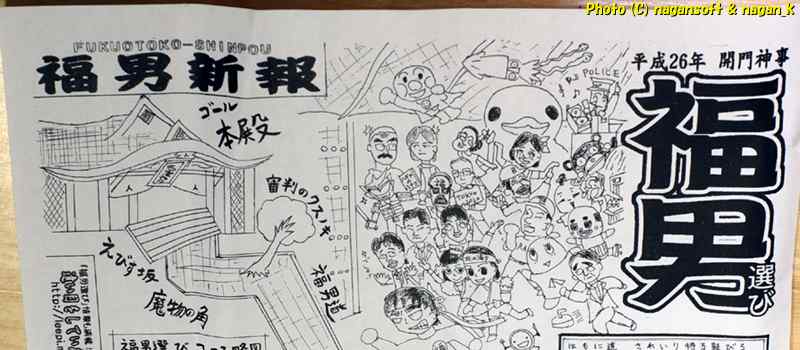 Photo (C) nagansoft & nagan_k
FUKUOTOKO-SHINPOU
福男新報
平成26年 開門神事
福男
選び
DJ POLICE
ゴール
本殿
審判のクスノキ
えびす坂
魔物の角
福男道
福男選び コース略図